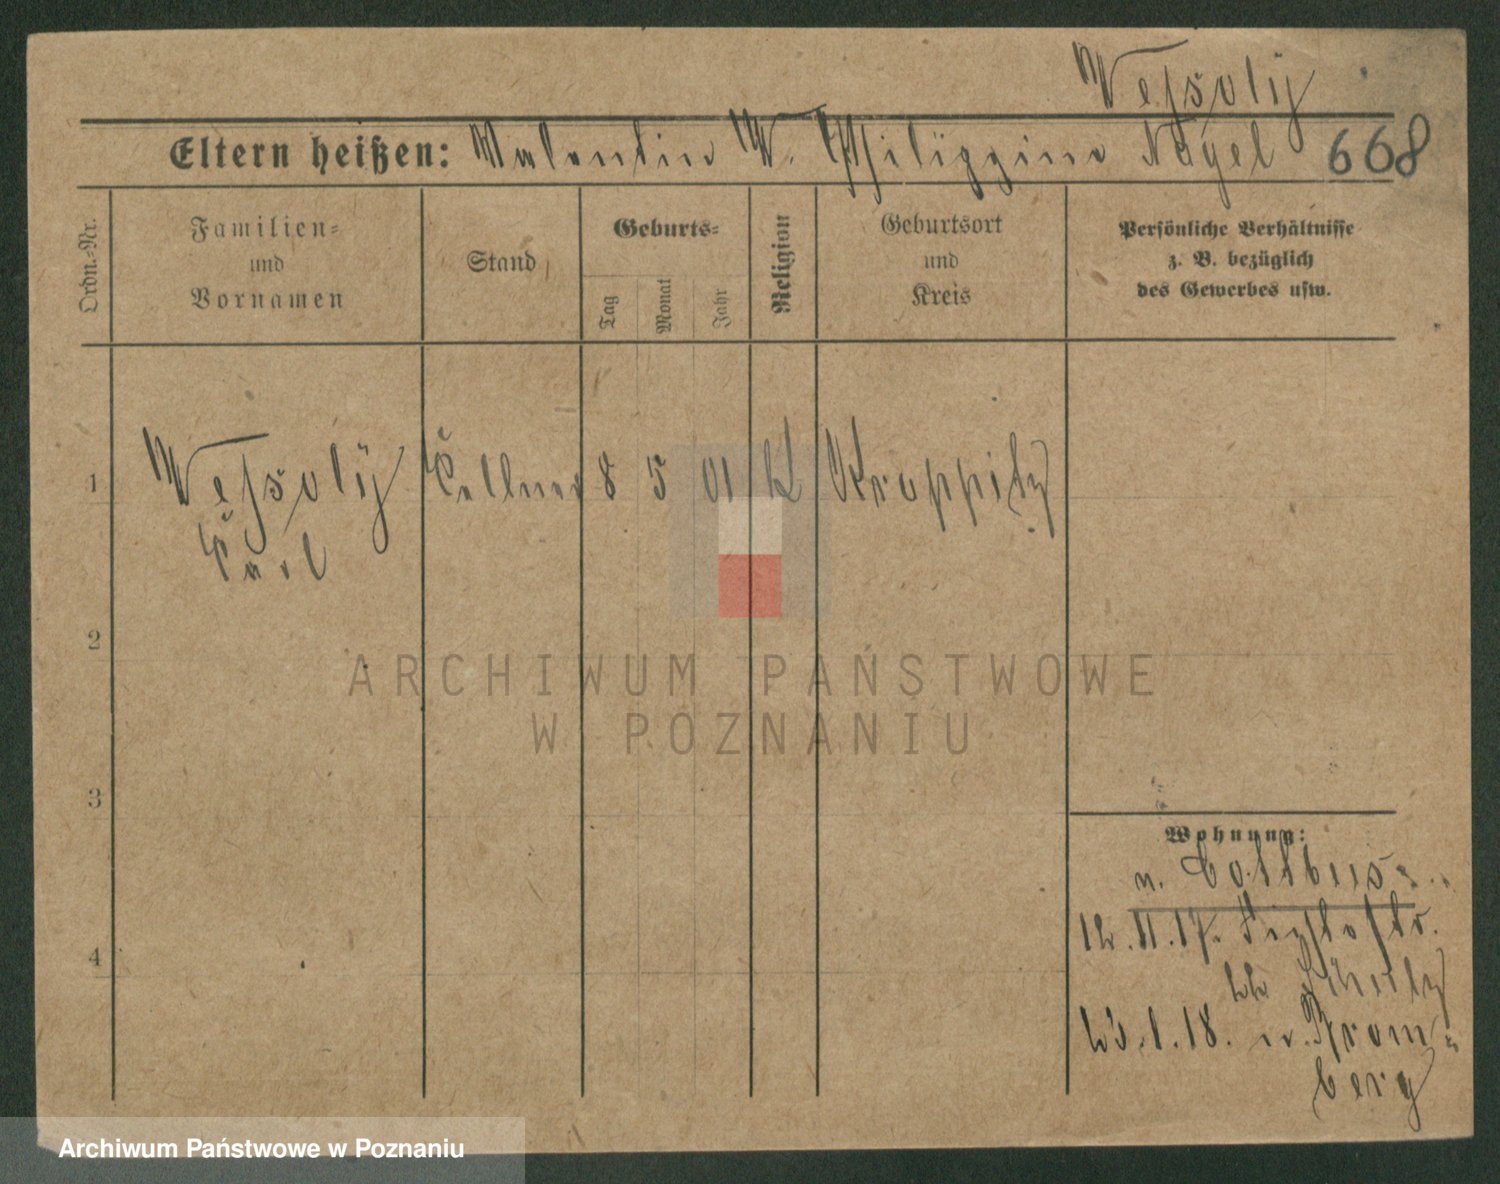 Wessoly
Eltern heißen: Valentin W. Philippine Nagel 668
Ordn.-Nr.
Familien-
und
Vornamen
Stand
Geburts-
Tag
Monat
Jahr
Religion
Geburtsort
und
Kreis
Persönliche Verhältnisse
z. B. bezüglich
des Gewerbes usw.
1 Wessoly Kellner 8 5 01 K Krappitz
Carl
2
3
4
ARCHIWUM PAŃSTWOWE
W POZNANIU
Wohnung:
n. Cottbus
12.11.17.
22
23.1.18. n. Brom-
berg
Archiwum Państwowe w Poznaniu